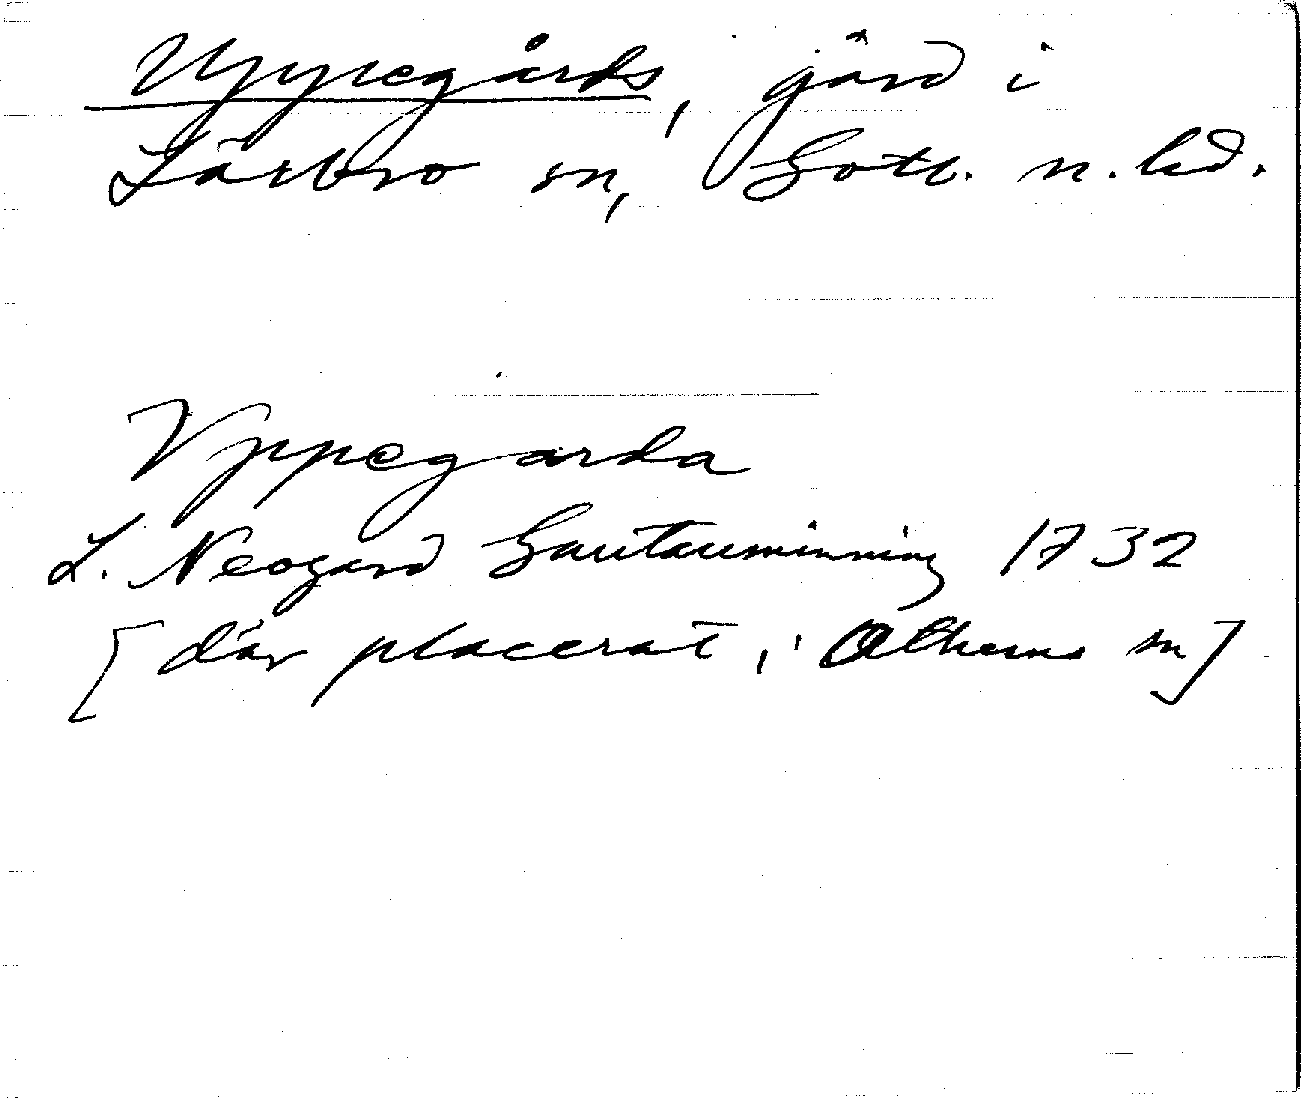 Uppegårds, gård i
Lärbro sn, Gotl. n. hd.
Vppegarda
L. Neogard Gautauminning 1732
[där placerat i Othems sn]